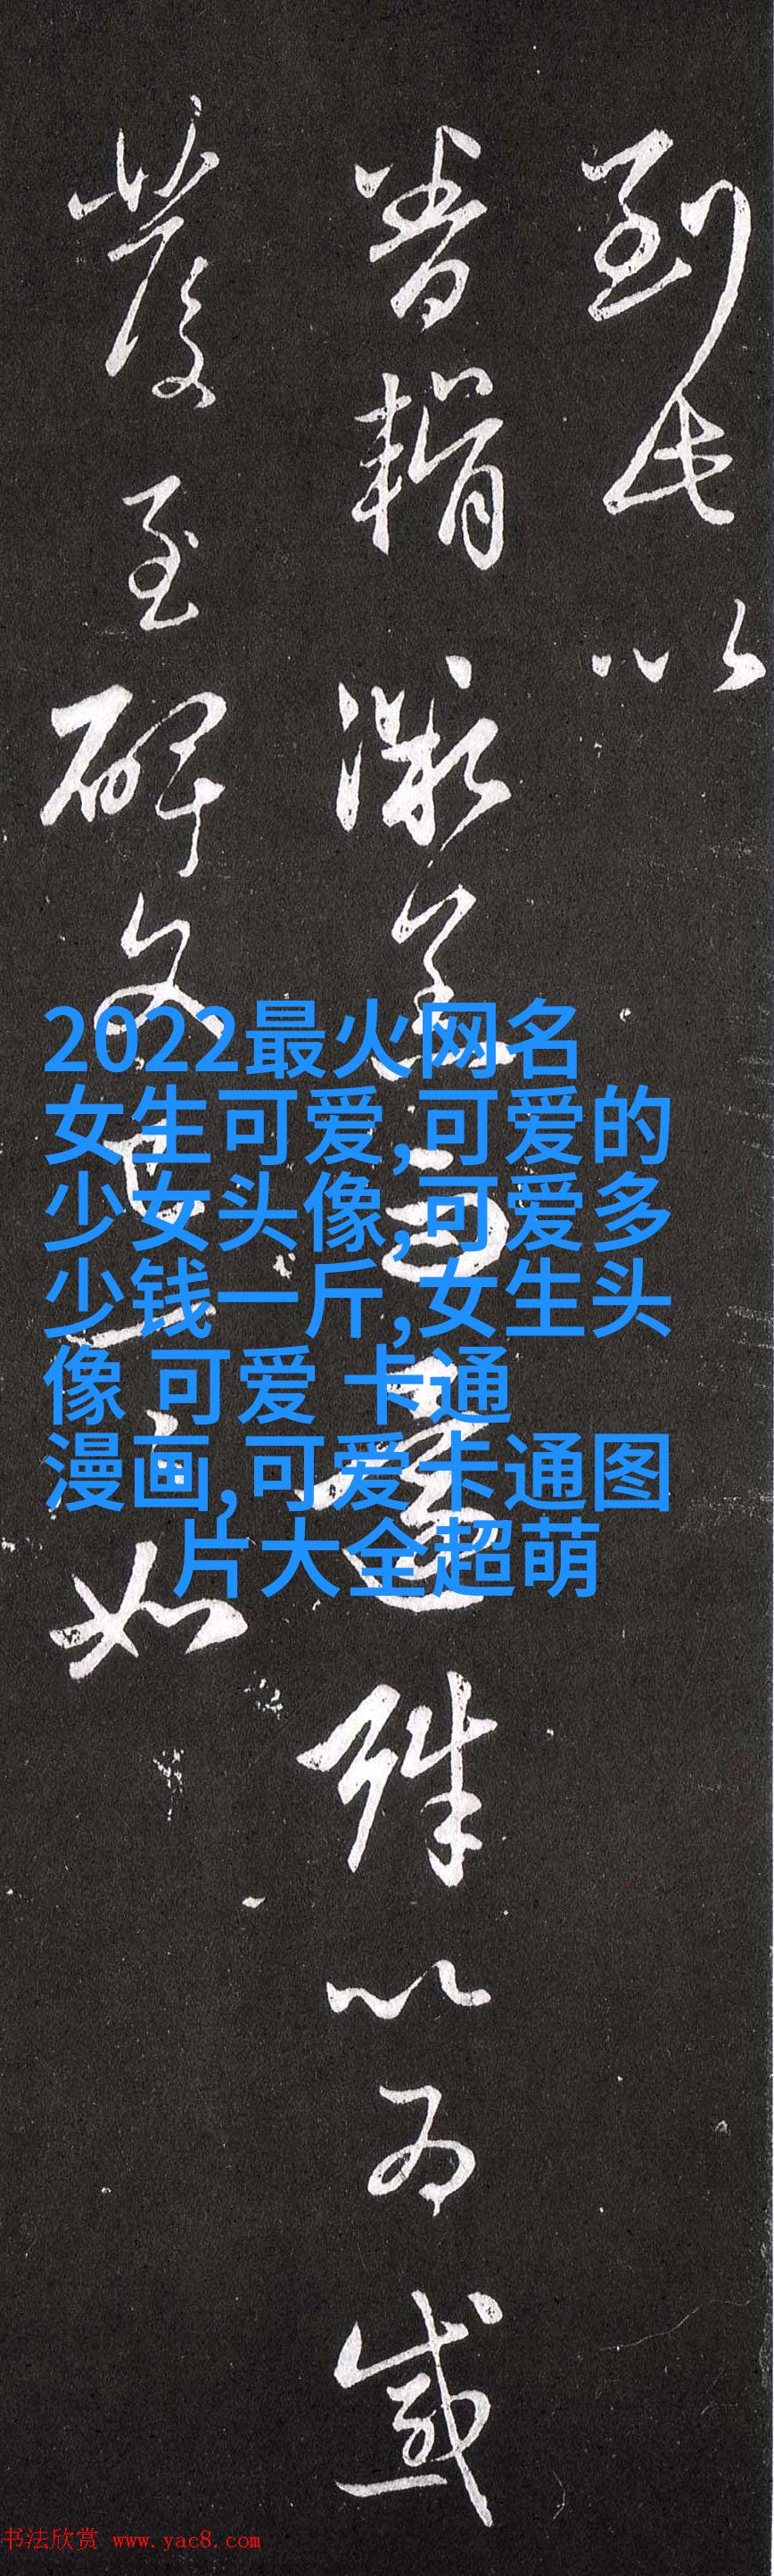 到此以
殊以為感
至碑文如
2022最火网名
女生可爱,可爱的
少女头像,可爱多
少钱一斤,女生头
像 可爱 卡通
漫画,可爱卡通图
片大全超萌
书法欣赏 www.yac8.com